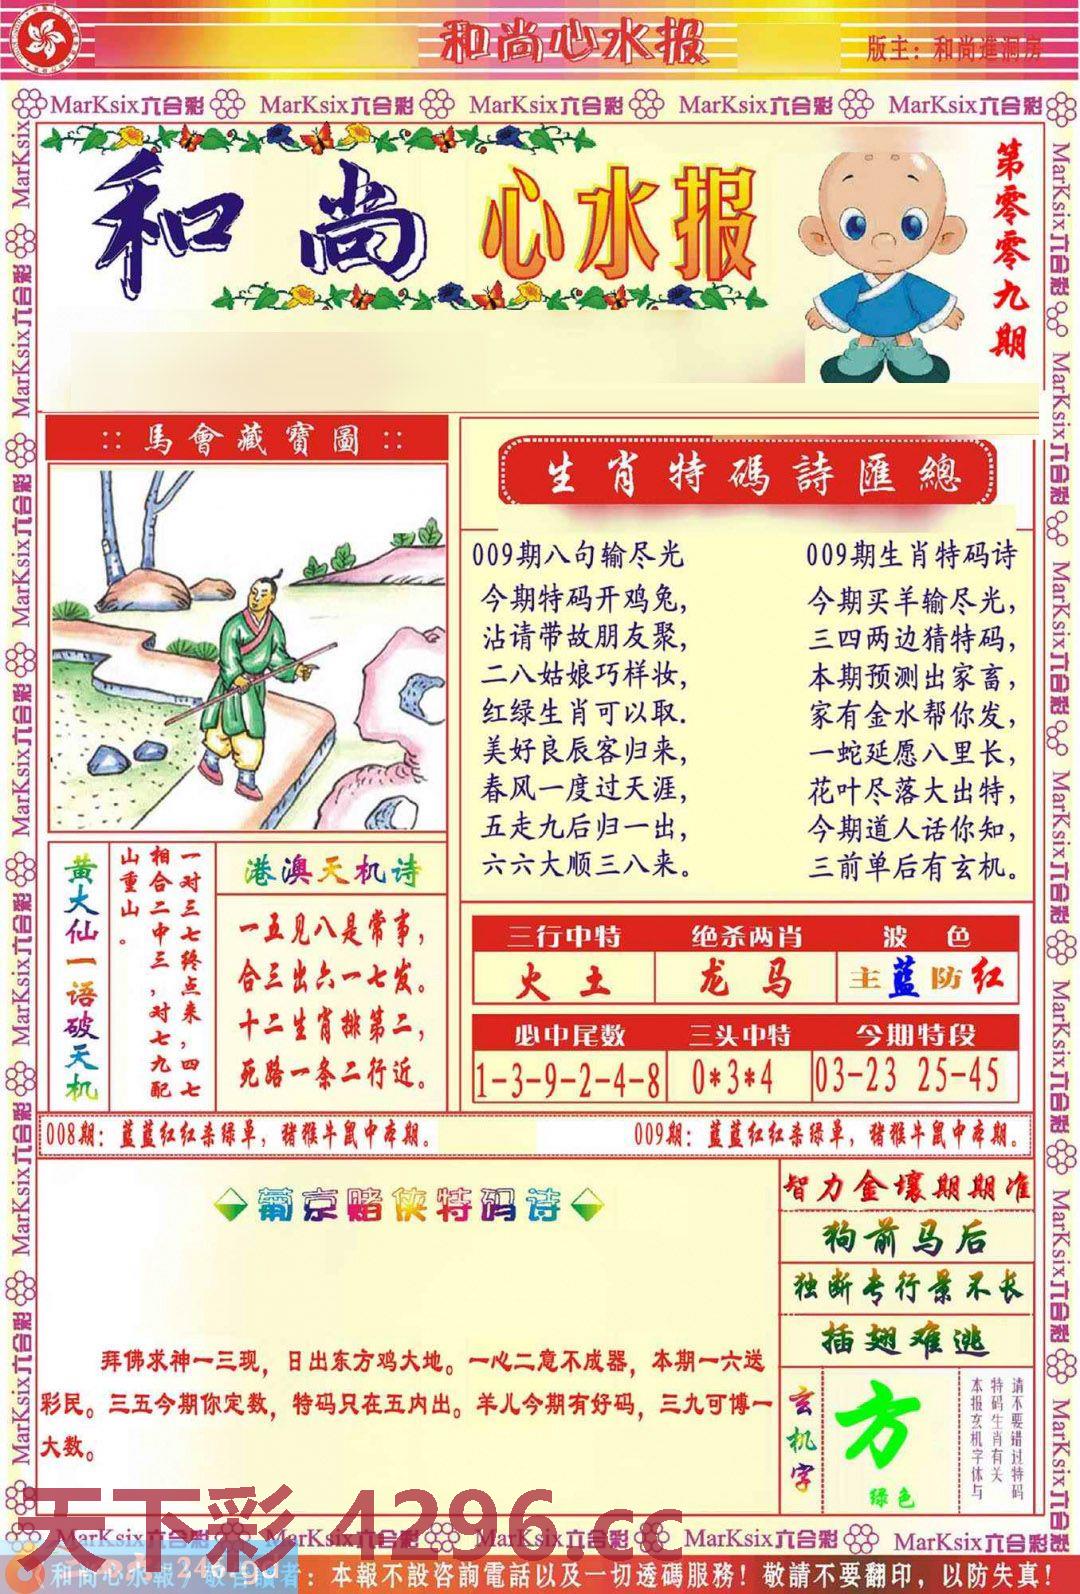 和尚心水报
版主：和尚進洞房
MarKsix六合彩 MarKsix六合彩 MarKsix六合彩 MarKsix六合彩 MarKsix六合彩
和尚心水报
第零零九期
::馬會藏寶圖::
生肖特碼詩匯總
009期八句输尽光
今期特码开鸡兔,
沾请带故朋友聚,
二八姑娘巧样妆,
红绿生肖可以取.
美好良辰客归来,
春风一度过天涯,
五走九后归一出,
六六大顺三八来。
009期生肖特码诗
今期买羊输尽光,
三四两边猜特码,
本期预测出家畜,
家有金水帮你发,
一蛇延愿八里长,
花叶尽落大出特,
今期道人话你知,
三前单后有玄机。
黄大仙一语破天机
一对三七终点来,四七
相合二中三,对七九配
山重山。
港澳天机诗
一五见八是常事,
合三出六一七发。
十二生肖排第二,
死路一条二行近。
三行中特 绝杀两肖 波色
火土 龙马 主蓝防红
必中尾数 三头中特 今期特段
1-3-9-2-4-8 0*3*4 03-23 25-45
008期：蓝蓝红红杀绿单，猪猴牛鼠中本期。
009期：蓝蓝红红杀绿单，猪猴牛鼠中本期。
葡京赌侠特码诗
拜佛求神一三现，日出东方鸡大地。一心二意不成器，本期一六送
彩民。三五今期你定数，特码只在五内出。羊儿今期有好码，三九可博一
大数。
智力金壤期期准
狗前马后
独断专行景不长
插翅难逃
玄机字
方
绿色
请不要错过特码
特码生肖有关
本报玄机字体与
天下彩 4296.cc
MarKsix六合彩 MarKsix六合彩 MarKsix六合彩 MarKsix六合彩 MarKsix六合彩
和尚心水報，敬告讀者：本報不設咨詢電話以及一切透碼服務！敬請不要翻印，以防失真！